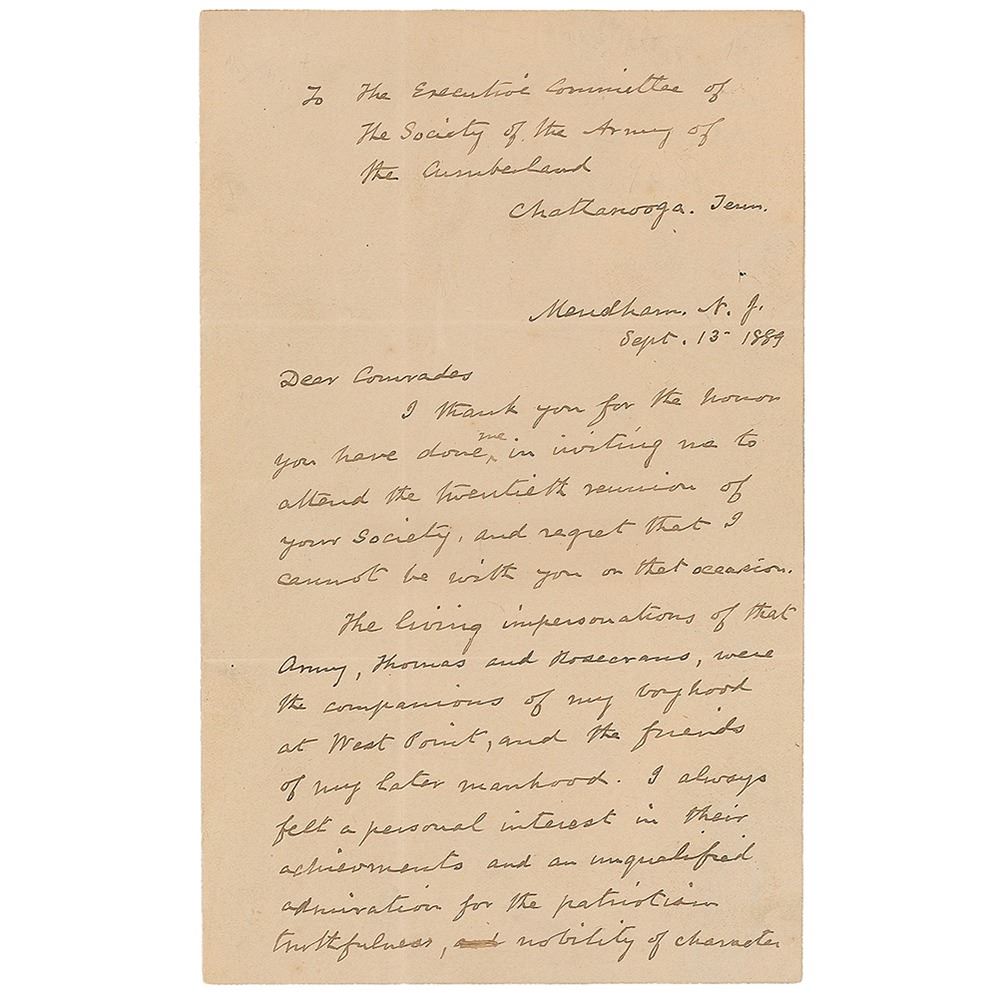 To The Executive Committee of
The Society of the Army of
the Cumberland
Chattanooga. Tenn.
Mendham. N. J.
Sept. 13 1889
Dear Comrades
I thank you for the honor
you have done me, in inviting me to
attend the twentieth reunion of
your Society, and regret that I
cannot be with you on that occasion.
The living impersonations of that
Army, Thomas and Rosecrans, were
the companions of my boyhood
at West Point, and the friends
of my later manhood. I always
felt a personal interest in their
achievments and an unqualified
admiration for the patriotism
truthfulness, and nobility of character